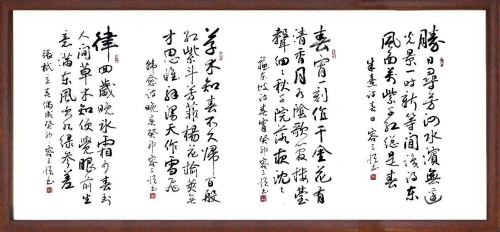 勝日尋芳泗水濱無邊
光景一時新等閒識得東
風面萬紫千紅總是春
朱熹詩春日
春宵一刻值千金花有
清香月有陰歌管樓臺
聲細細秋千院落夜沈沈
蘇東坡詩春宵癸卯
草木知春不久歸百般
紅紫斗芳菲楊花榆莢無
才思惟解漫天作雪飛
韓愈詩晚春癸卯
律回歲晚冰霜少春到
人間草木知便覺眼前生
意滿東風吹水綠參差
張栻立春偶成癸卯